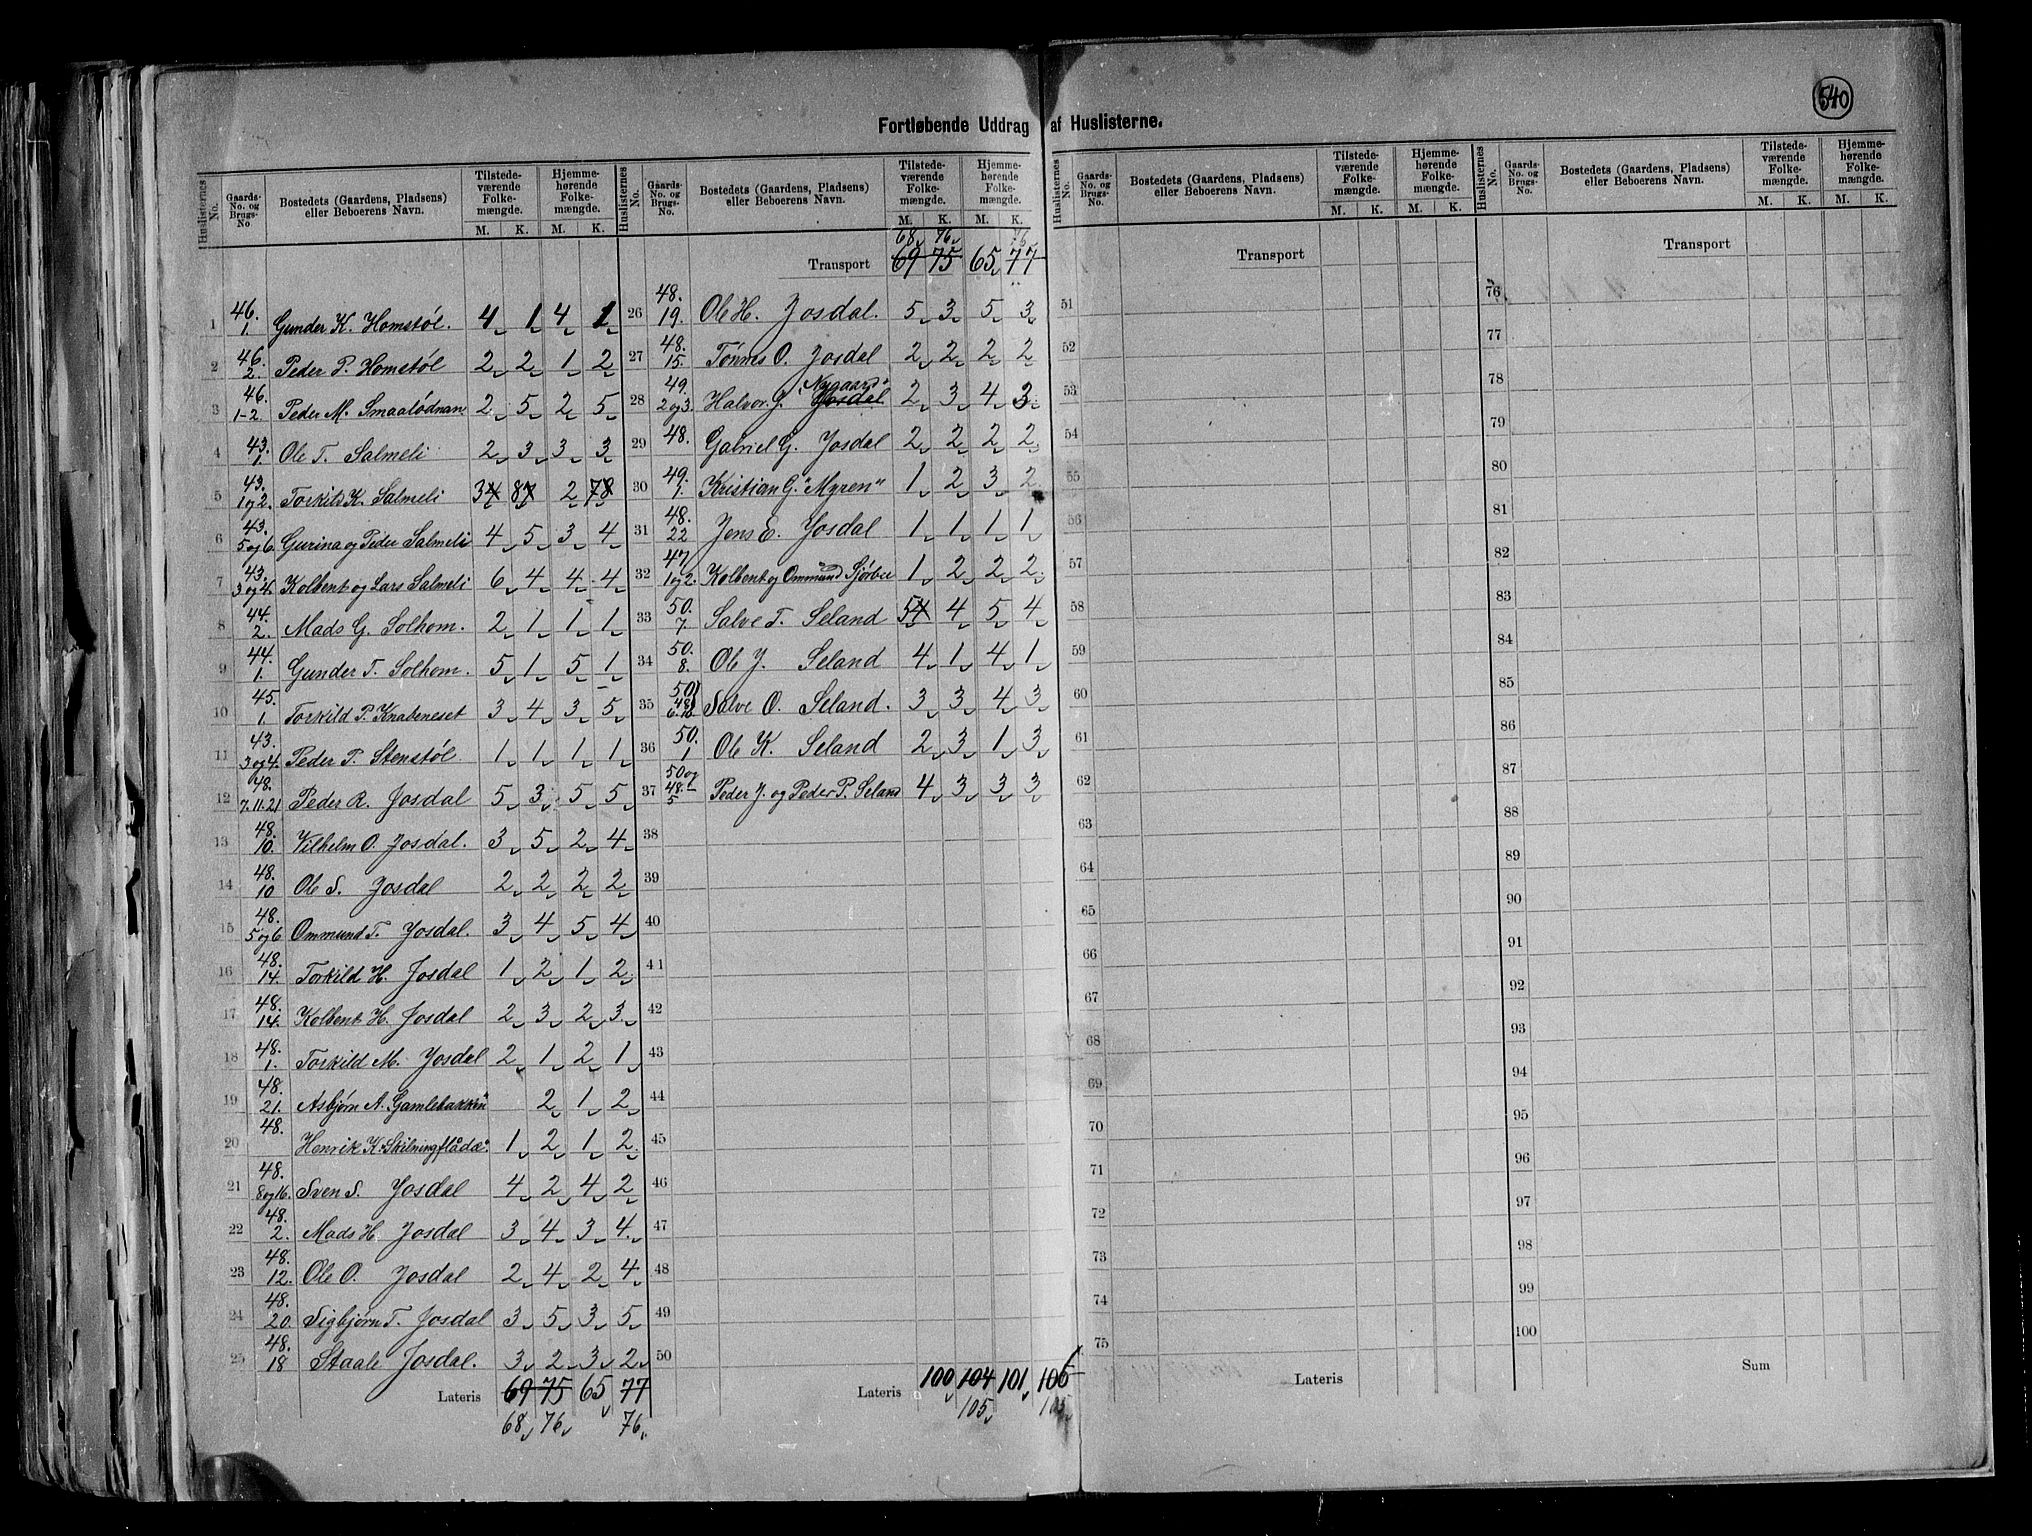 540
Fortløbende Uddrag af Huslisterne.
Huslisternes No. | Gaards-No. og Brugs-No. | Bostedets (Gaardens, Pladsens) eller Beboerens Navn. | Tilstedeværende Folkemængde. M. K. | Hjemmehørende Folkemængde. M. K.
1 46. 1. Gunder K. Homstøl. 4 1 4 1
2 46. 2. Peder P. Homstøl 2 2 1 2
3 46. 1-2. Peder M. Smaalødnan 2 5 2 5
4 43. 1. Ole T. Salmeli 2 3 3 3
5 43. 1 og 2. Torkild K. Salmeli 3 4 8 7 2 7 8
6 43. 5 og 6. Gurina og Peder Salmeli 4 5 3 4
7 43. 3 og 4. Kolbent og Lars Salmeli 6 4 4 4
8 44. 2. Mads G. Solhom. 2 1 1 1
9 44. 1. Gunder T. Solhom. 5 1 5 1
10 45. 1 Torkild P. Knabeneset 3 4 3 5
11 43. 3 og 4. Peder P. Stenstøl 1 1 1 1
12 48. 7. 11. 21 Peder R. Josdal 5 3 5 5
13 48. 10. Vilhelm O. Josdal. 3 5 2 4
14 48. 10 Ole S. Josdal 2 2 2 2
15 48. 5 og 6 Ommund T. Josdal. 3 4 5 4
16 48. 14. Torkild H. Josdal 1 2 1 2
17 48. 14. Kolbent H. Josdal 2 3 2 3
18 48. 1. Torkild M. Josdal 2 1 2 1
19 48. 21. Asbjørn A. "Gamlebakken" 2 1 2
20 48. Henrik K. "Skilningsflådæ" 1 2 1 2
21 48. 8 og 16. Sven S. Josdal 4 2 4 2
22 48. 2. Mads H. Josdal 3 4 3 4
23 48. 12. Ole O. Josdal 2 4 2 4
24 48. 20. Sigbjørn T. Josdal 3 5 3 5
25 48. 18 Staale Josdal. 3 2 3 2
Lateris 69 75 65 77
68 76 76
Huslisternes No. | Gaards-No. og Brugs-No. | Bostedets (Gaardens, Pladsens) eller Beboerens Navn. | Tilstedeværende Folkemængde. M. K. | Hjemmehørende Folkemængde. M. K.
68 76 76
Transport 69 75 65 77
26 48. 19. Ole H. Josdal. 5 3 5 3
27 48. 15. Tønnes O. Josdal 2 2 2 2
28 49. 2 og 3. Halvor J. Josdal "Nygaard" 2 3 4 3
29 48. Gabriel G. Josdal 2 2 2 2
30 49. 1. Kristian G. "Myren" 1 2 3 2
31 48. 22 Jens E. Josdal 1 1 1 1
32 47 1 og 2. Kolbent og Ommund Sjørbu 1 2 2 2
33 50. 7. Salve T. Seland 5 4 4 5 4
34 50. 8. Ole J. Seland 4 1 4 1
35 50 48 6-18 Salve O. Seland. 3 3 4 3
36 50. 1 Ole K. Seland 2 3 1 3
37 50 og 48. 5 Peder J. og Peder P. Seland 4 3 3 3
38
39
40
41
42
43
44
45
46
47
48
49
50
Lateris 100 104 101 106
105 105
Huslisternes No. | Gaards-No. og Brugs-No. | Bostedets (Gaardens, Pladsens) eller Beboerens Navn. | Tilstedeværende Folkemængde. M. K. | Hjemmehørende Folkemængde. M. K.
Transport
51
52
53
54
55
56
57
58
59
60
61
62
63
64
65
66
67
68
69
70
71
72
73
74
75
Lateris
Huslisternes No. | Gaards-No. og Brugs-No. | Bostedets (Gaardens, Pladsens) eller Beboerens Navn. | Tilstedeværende Folkemængde. M. K. | Hjemmehørende Folkemængde. M. K.
Transport
76
77
78
79
80
81
82
83
84
85
86
87
88
89
90
91
92
93
94
95
96
97
98
99
100
Sum